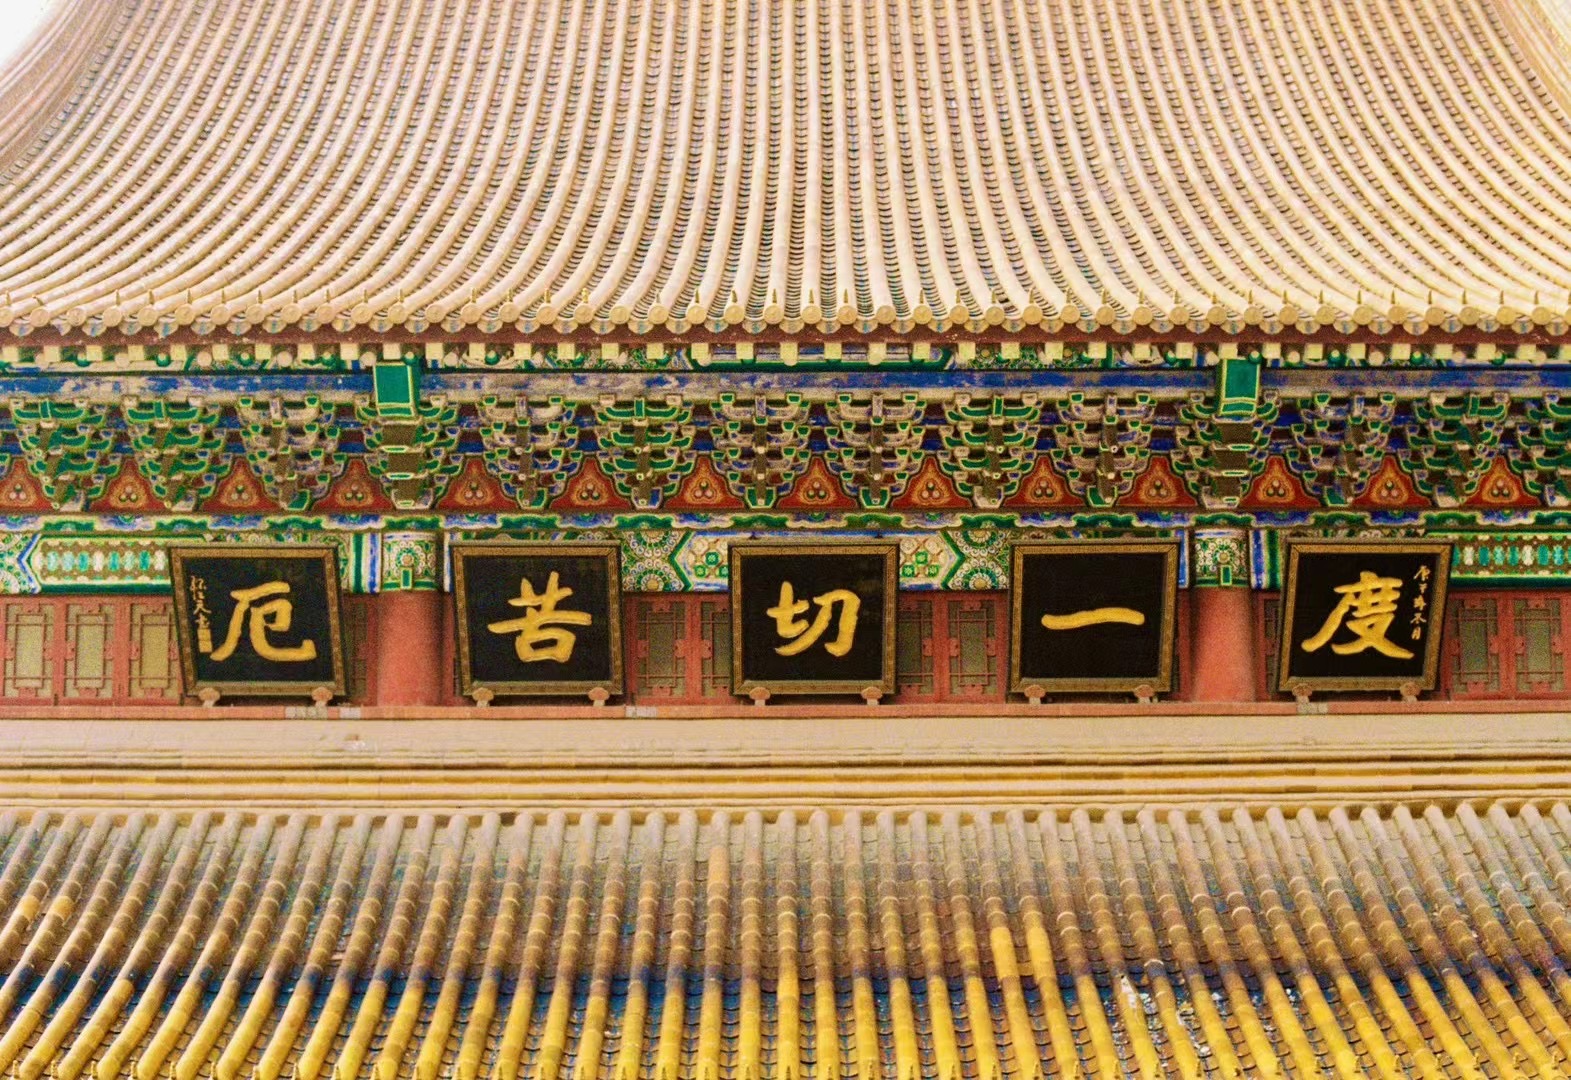 度一切苦厄